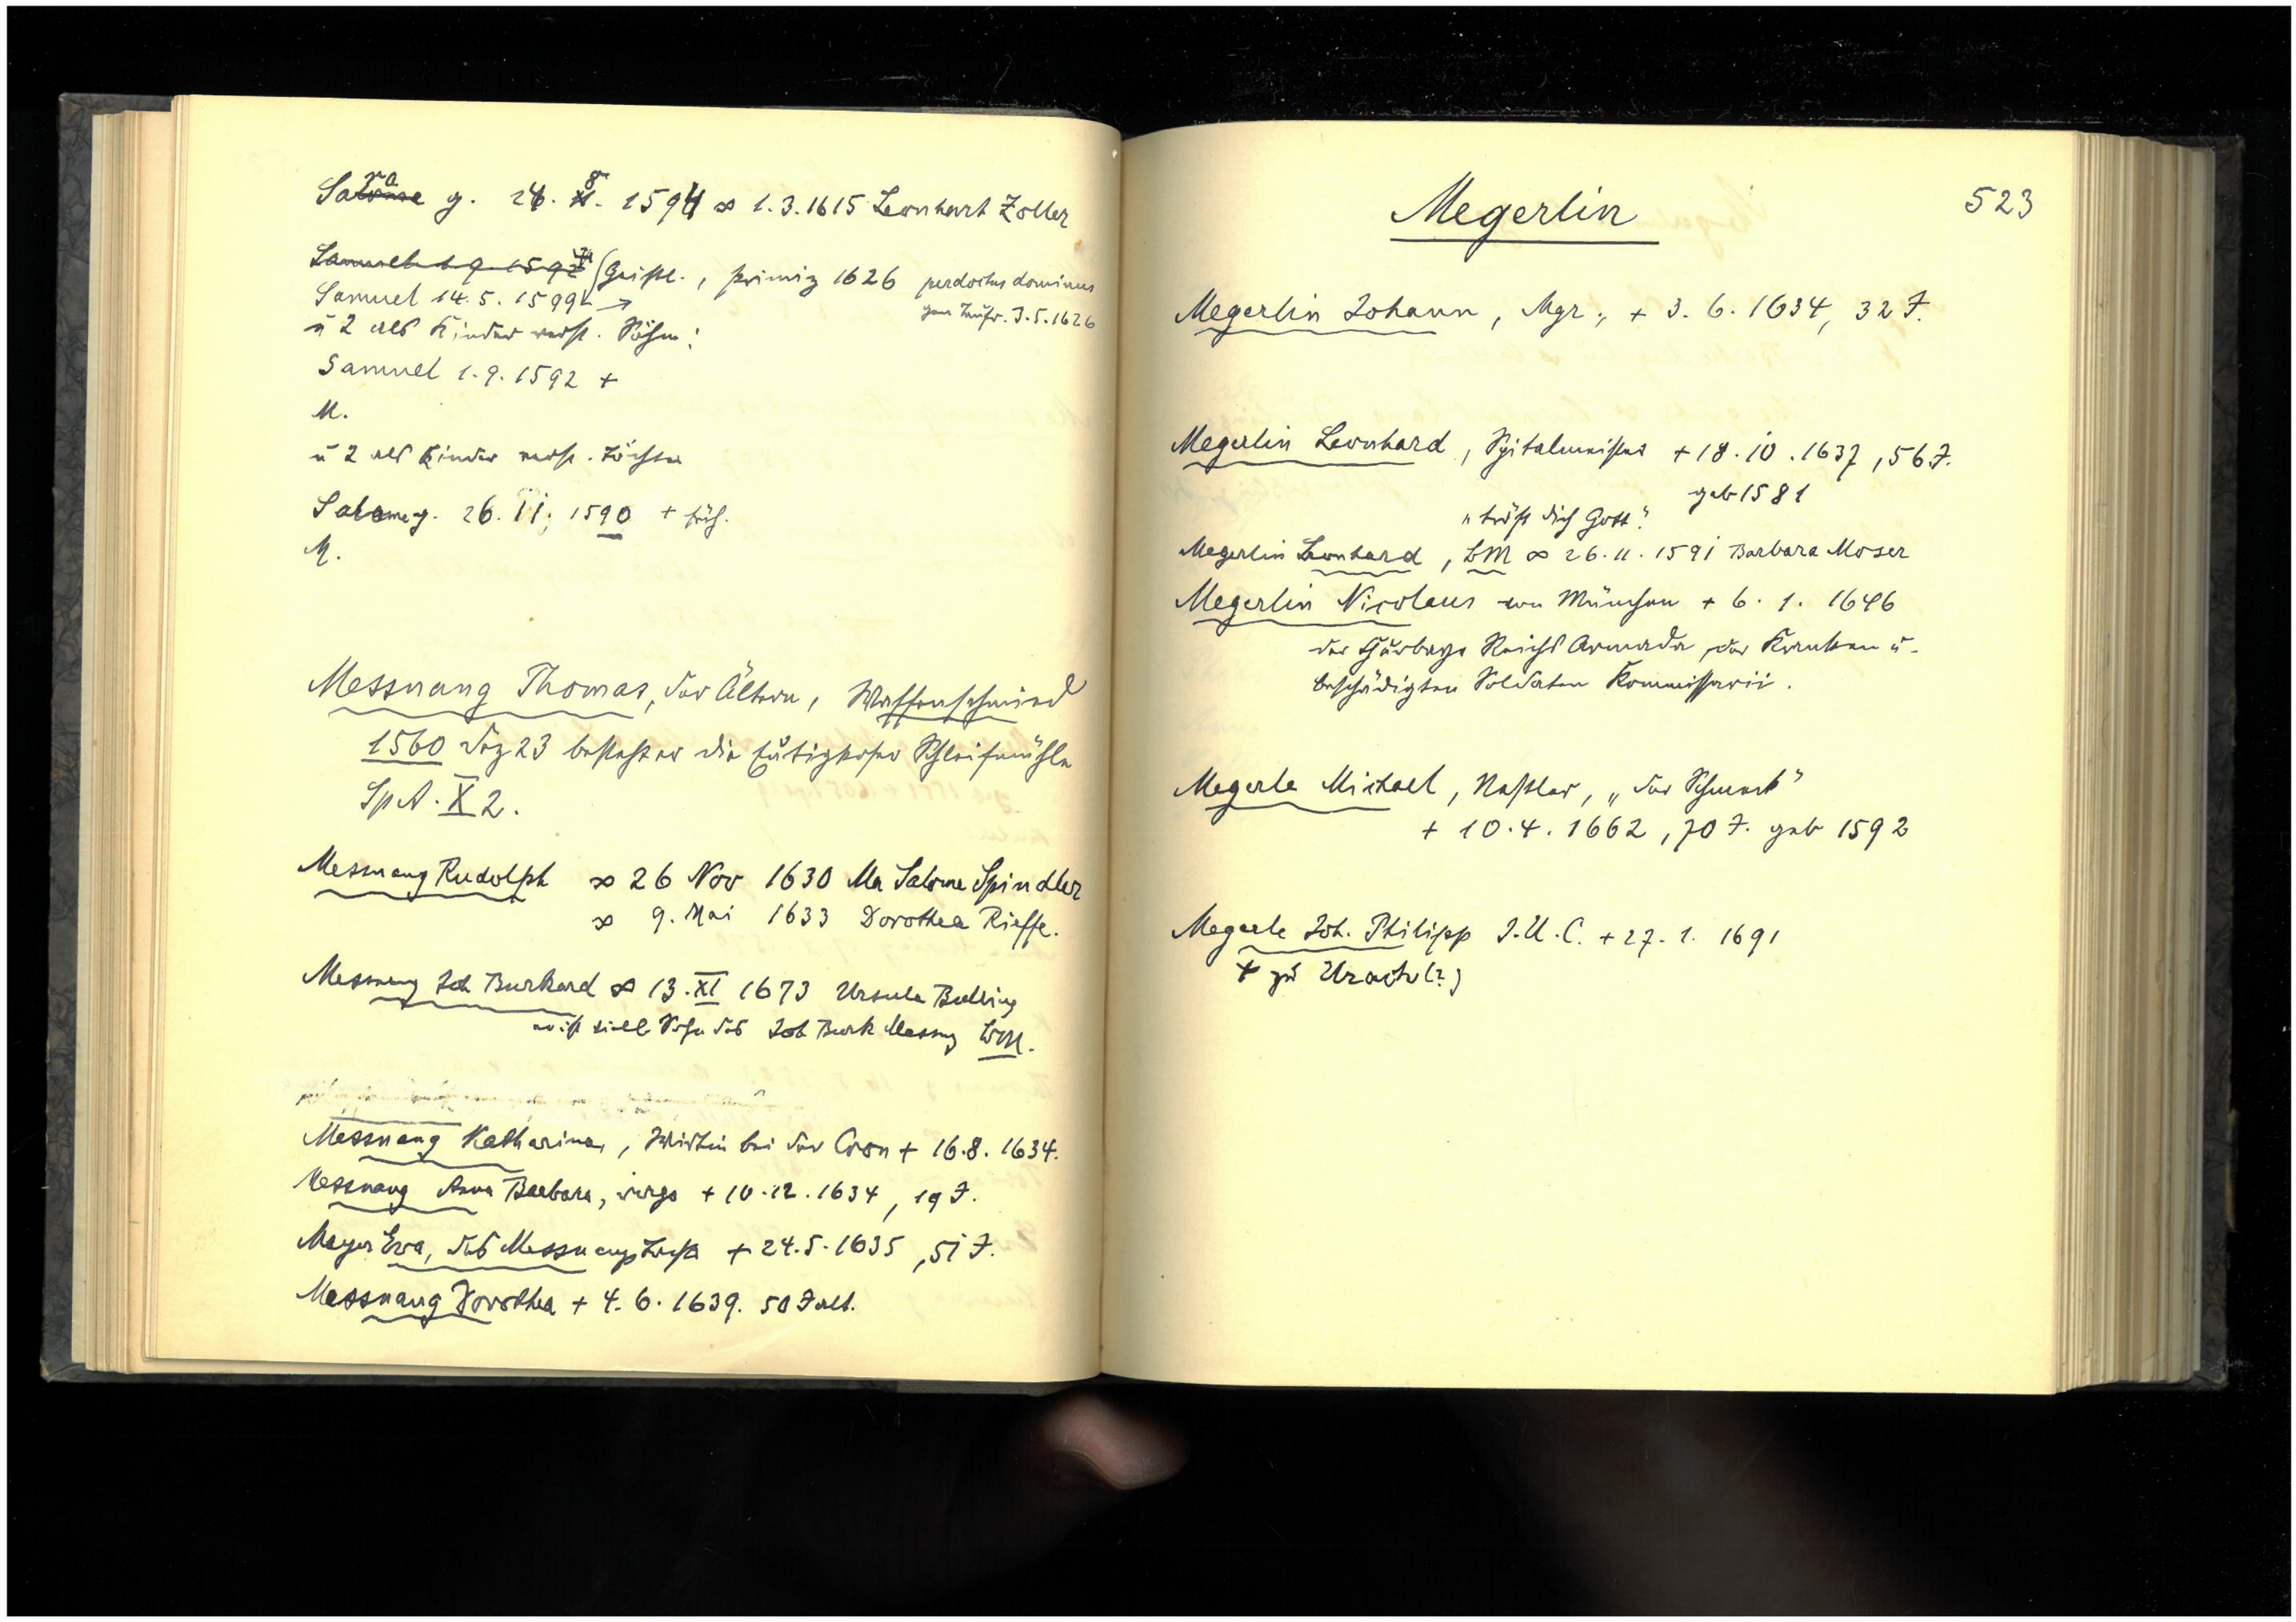 Sara g. 24. 8. 1594 ∞ 1.3.1615 Leonhart Zoller
Samuel 1 9 1597 Geistl., primiz 1626 perdoctus dominus
Samuel 14.5.1599 →
gen Taufr. 3.5.1626
u 2 als Kinder verst. Söhne:
Samuel 1.9.1592 +
M.
u 2 als Kinder verst. Töchter
Salome g. 26. 11. 1590 + früh.
M.
Messnang Thomas, der Ältere, Waffenschmied
1560 Dez 23 besteht er die Schleifmühle
SpA. X 2.
Messnang Rudolph ∞ 26 Nov 1630 Ma Salome Spindler
∞ 9. Mai 1633 Dorothea Rieffe.
Messnang Joh Burkard ∞ 13. XI 1673 Ursula
er ist viell Sohn des Joh Burk Messng
Messnang Katharina, Wirthin bei der Cron + 16.8.1634.
Messnang Anna Barbara, virgo + 10.12.1634, 19 J.
Mayer Eva, des Messnangs + 24.5.1635, 51 J.
Messnang Dorothea + 4.6.1639. 50 J alt.
Megerlin
523
Megerlin Johann, Mgr., + 3.6.1634, 32 J.
Megerlin Leonhard, Spitalmeister + 18.10.1637, 56 J.
geb 1581
"tröst dich Gott".
Megerlin Leonhard, BM ∞ 26.11.1591 Barbara Moser
Megerlin Nicolaus von München + 6.1.1646
der Churbayr Reichs Armada, der Kranken u.
beschädigten Soldaten Kommissarii.
Megerle Michael, Nestler, "der Schmeck"
+ 10.4.1662, 70 J. geb 1592
Megerle Joh. Philipp J.U.C. + 27.1.1691
+ zu Urach (?)